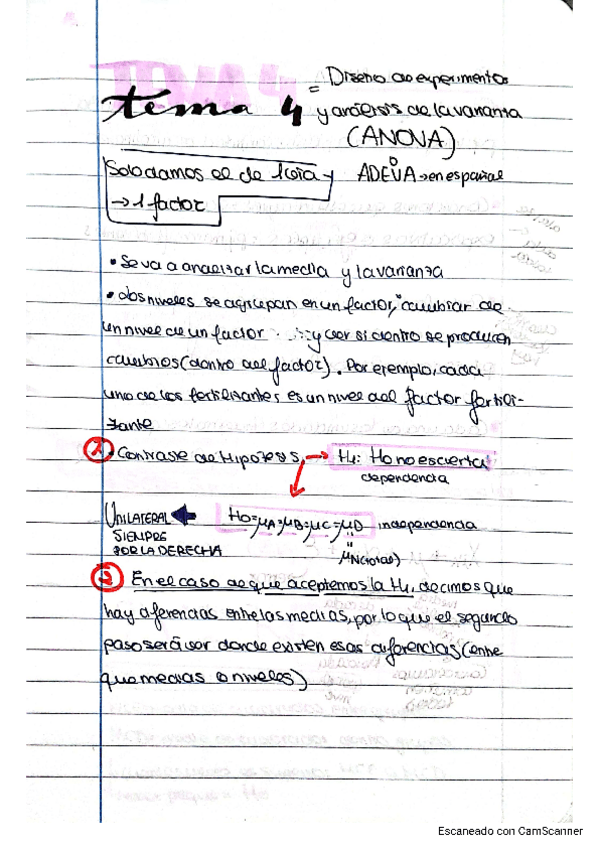 tema 4 = Diseño de experimentos
y análisis de la varianza
(ANOVA)
Solo damos el de 1 cía y
→ 1 factor
ADEVA → en español
• Se va a analizar la media y la varianza
• los niveles se agrupan en un factor, cambiar de
un nivel de un factor y ver si dentro se producen
cambios (dentro del factor). Por ejemplo, cada
uno de los fertilizantes es un nivel del factor fertili-
zante
Contraste de Hipótesis → H1: Ho no es cierta
dependencia
UNILATERAL
SIEMPRE
POR LA DERECHA
Ho = μA = μB = μC = μD independencia
En el caso de que aceptemos la H1, decimos que
hay diferencias entre las medias, por lo que el segundo
paso será ver donde existen esas diferencias (entre
que medias o niveles)
Escaneado con CamScanner